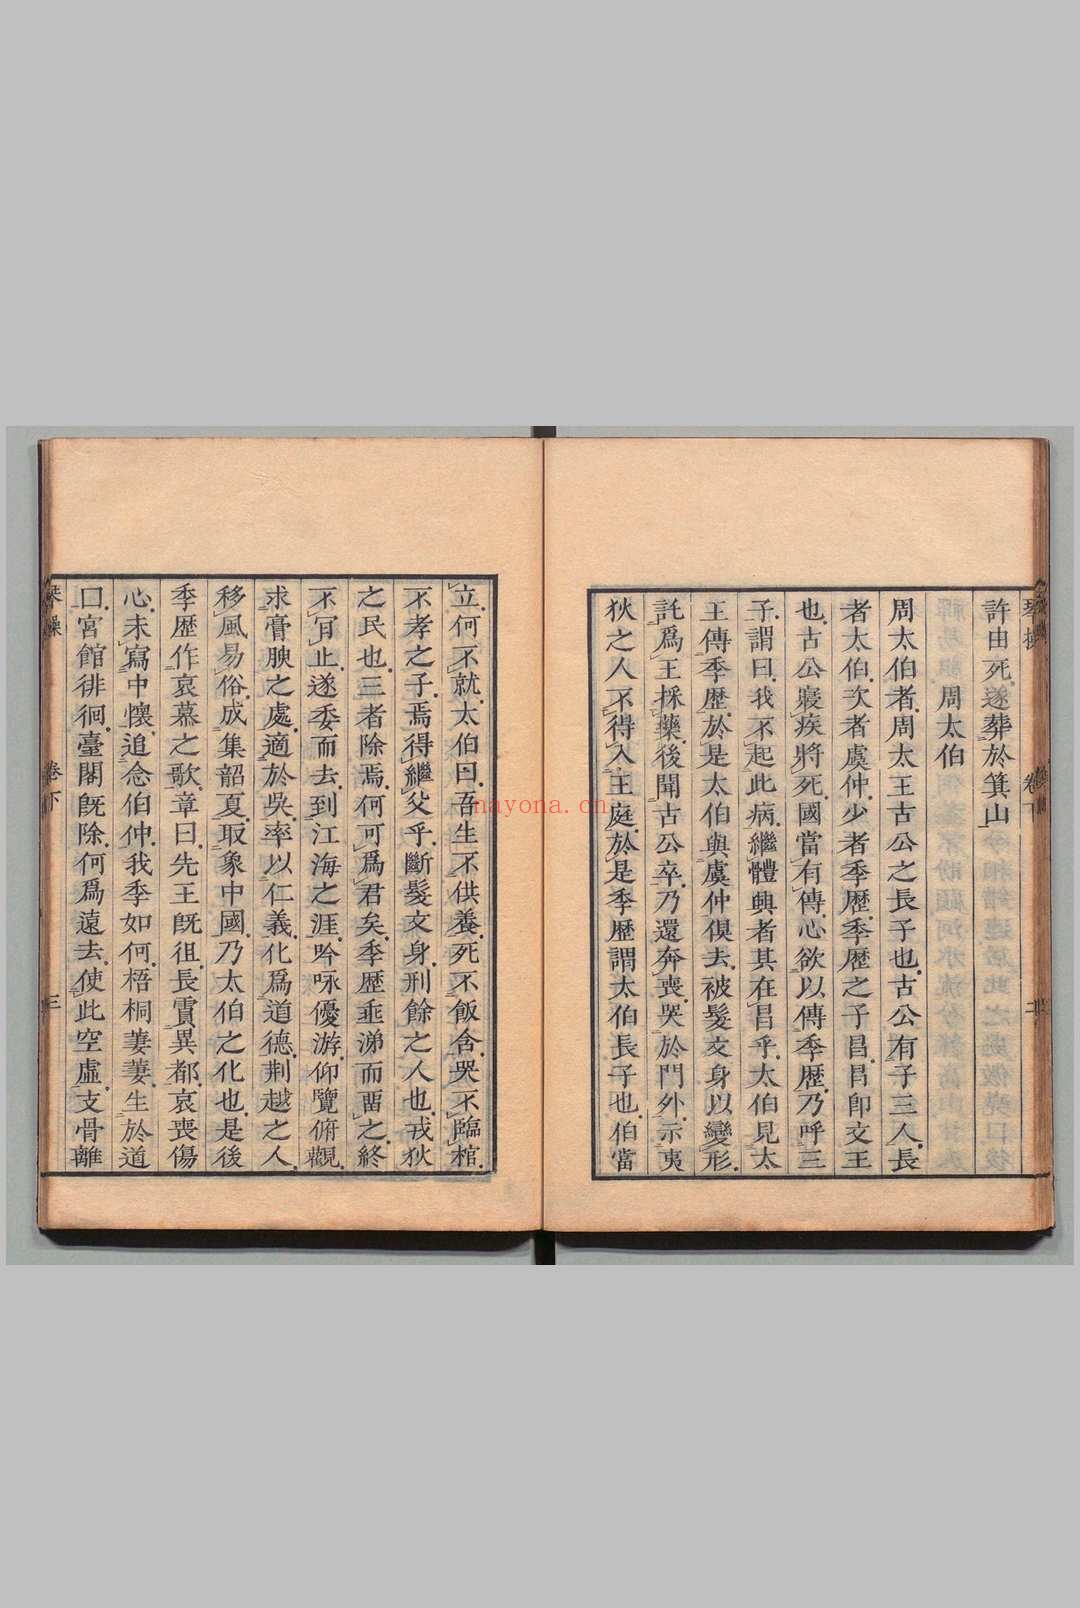 琴操 卷下 二
許由死遂葬於箕山
周太伯
周太伯者周太王古公之長子也古公有子三人長
者太伯次者虞仲少者季歷季歷之子昌昌卽文王
也古公寢疾將死國當有傳心欲以傳季歷乃呼三
子謂曰我不起此病繼體興者其在昌乎太伯見太
王傳季歷於是太伯與虞仲俱去被髮文身以變形
託爲王採藥後聞古公卒乃還奔喪哭於門外示夷
狄之人不得入王庭於是季歷謂太伯長子也伯當
立何不就太伯曰吾生不供養死不飯含哭不臨棺
不孝之子焉得繼父乎斷髮文身刑餘之人也戎狄
之民也三者除焉何可爲君矣季歷垂涕而畱之終
不肎止遂委而去到江海之涯吟咏優游仰覽俯觀
求膏腴之處適於吳率以仁義化爲道德荆越之人
移風易俗成集韶夏取象中國乃太伯之化也是後
季歷作哀慕之歌章曰先王旣徂長霣異都哀喪傷
心未寫中懷追念伯仲我季如何梧桐萋萋生於道
口宮館徘徊臺閣旣除何爲遠去使此空虛支骨離
琴操 卷下 三
nayona.cn